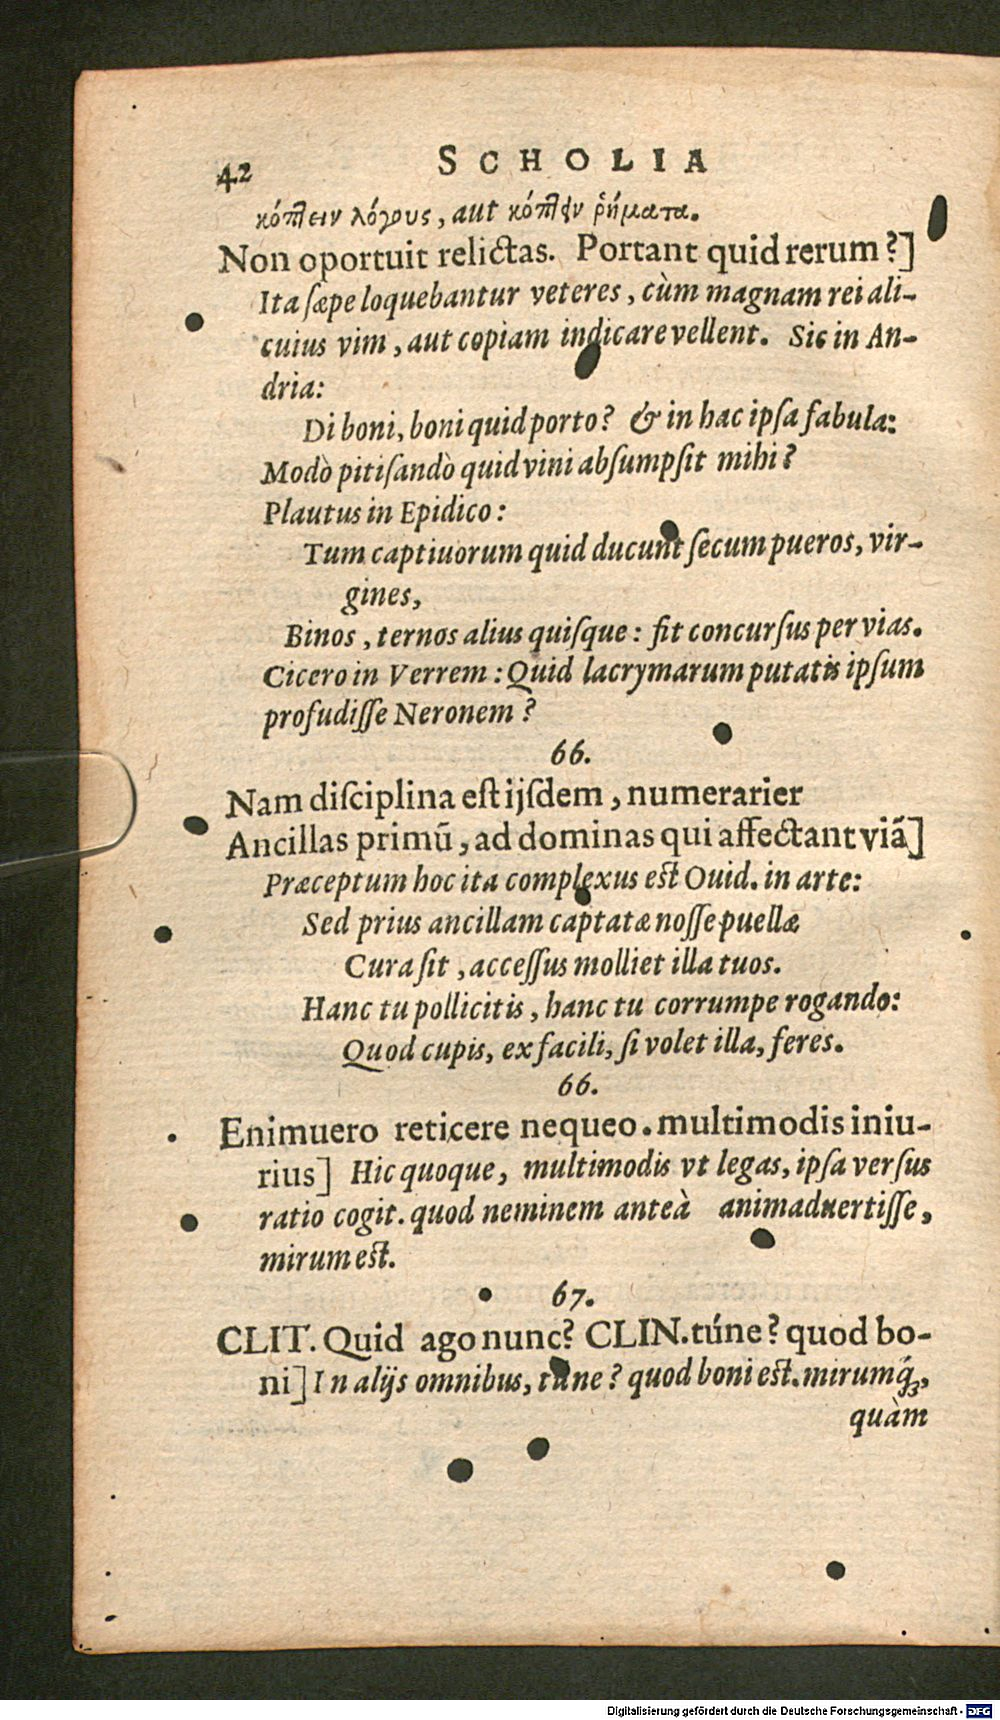 42 SCHOLIA
κόπτειν λόγους, aut κόπτειν ῥήματα.
Non oportuit relictas. Portant quid rerum?]
Ita sæpe loquebantur veteres, cùm magnam rei ali-
cuius vim, aut copiam indicare vellent. Sic in An-
dria:
Di boni, boni quid porto? & in hac ipsa fabula:
Modò pitisandò quid vini absumpsit mihi?
Plautus in Epidico:
Tum captiuorum quid ducunt secum pueros, vir-
gines,
Binos, ternos alius quisque: fit concursus per vias.
Cicero in Verrem: Quid lacrymarum putatis ipsum
profudisse Neronem?
66.
Nam disciplina est ijsdem, numerarier
Ancillas primū, ad dominas qui affectant viā]
Præceptum hoc ita complexus est Ouid. in arte:
Sed prius ancillam captatæ nosse puellæ
Cura sit, accessus molliet illa tuos.
Hanc tu pollicitis, hanc tu corrumpe rogando:
Quod cupis, ex facili, si volet illa, feres.
66.
Enimuero reticere nequeo. multimodis iniu-
rius] Hic quoque, multimodis vt legas, ipsa versus
ratio cogit. quod neminem anteà animaduertisse,
mirum est.
67.
CLIT. Quid ago nunc? CLIN. túne? quod bo-
ni] In alijs omnibus, túne? quod boni est. mirumq́;,
quàm
Digitalisierung gefördert durch die Deutsche Forschungsgemeinschaft - DFG